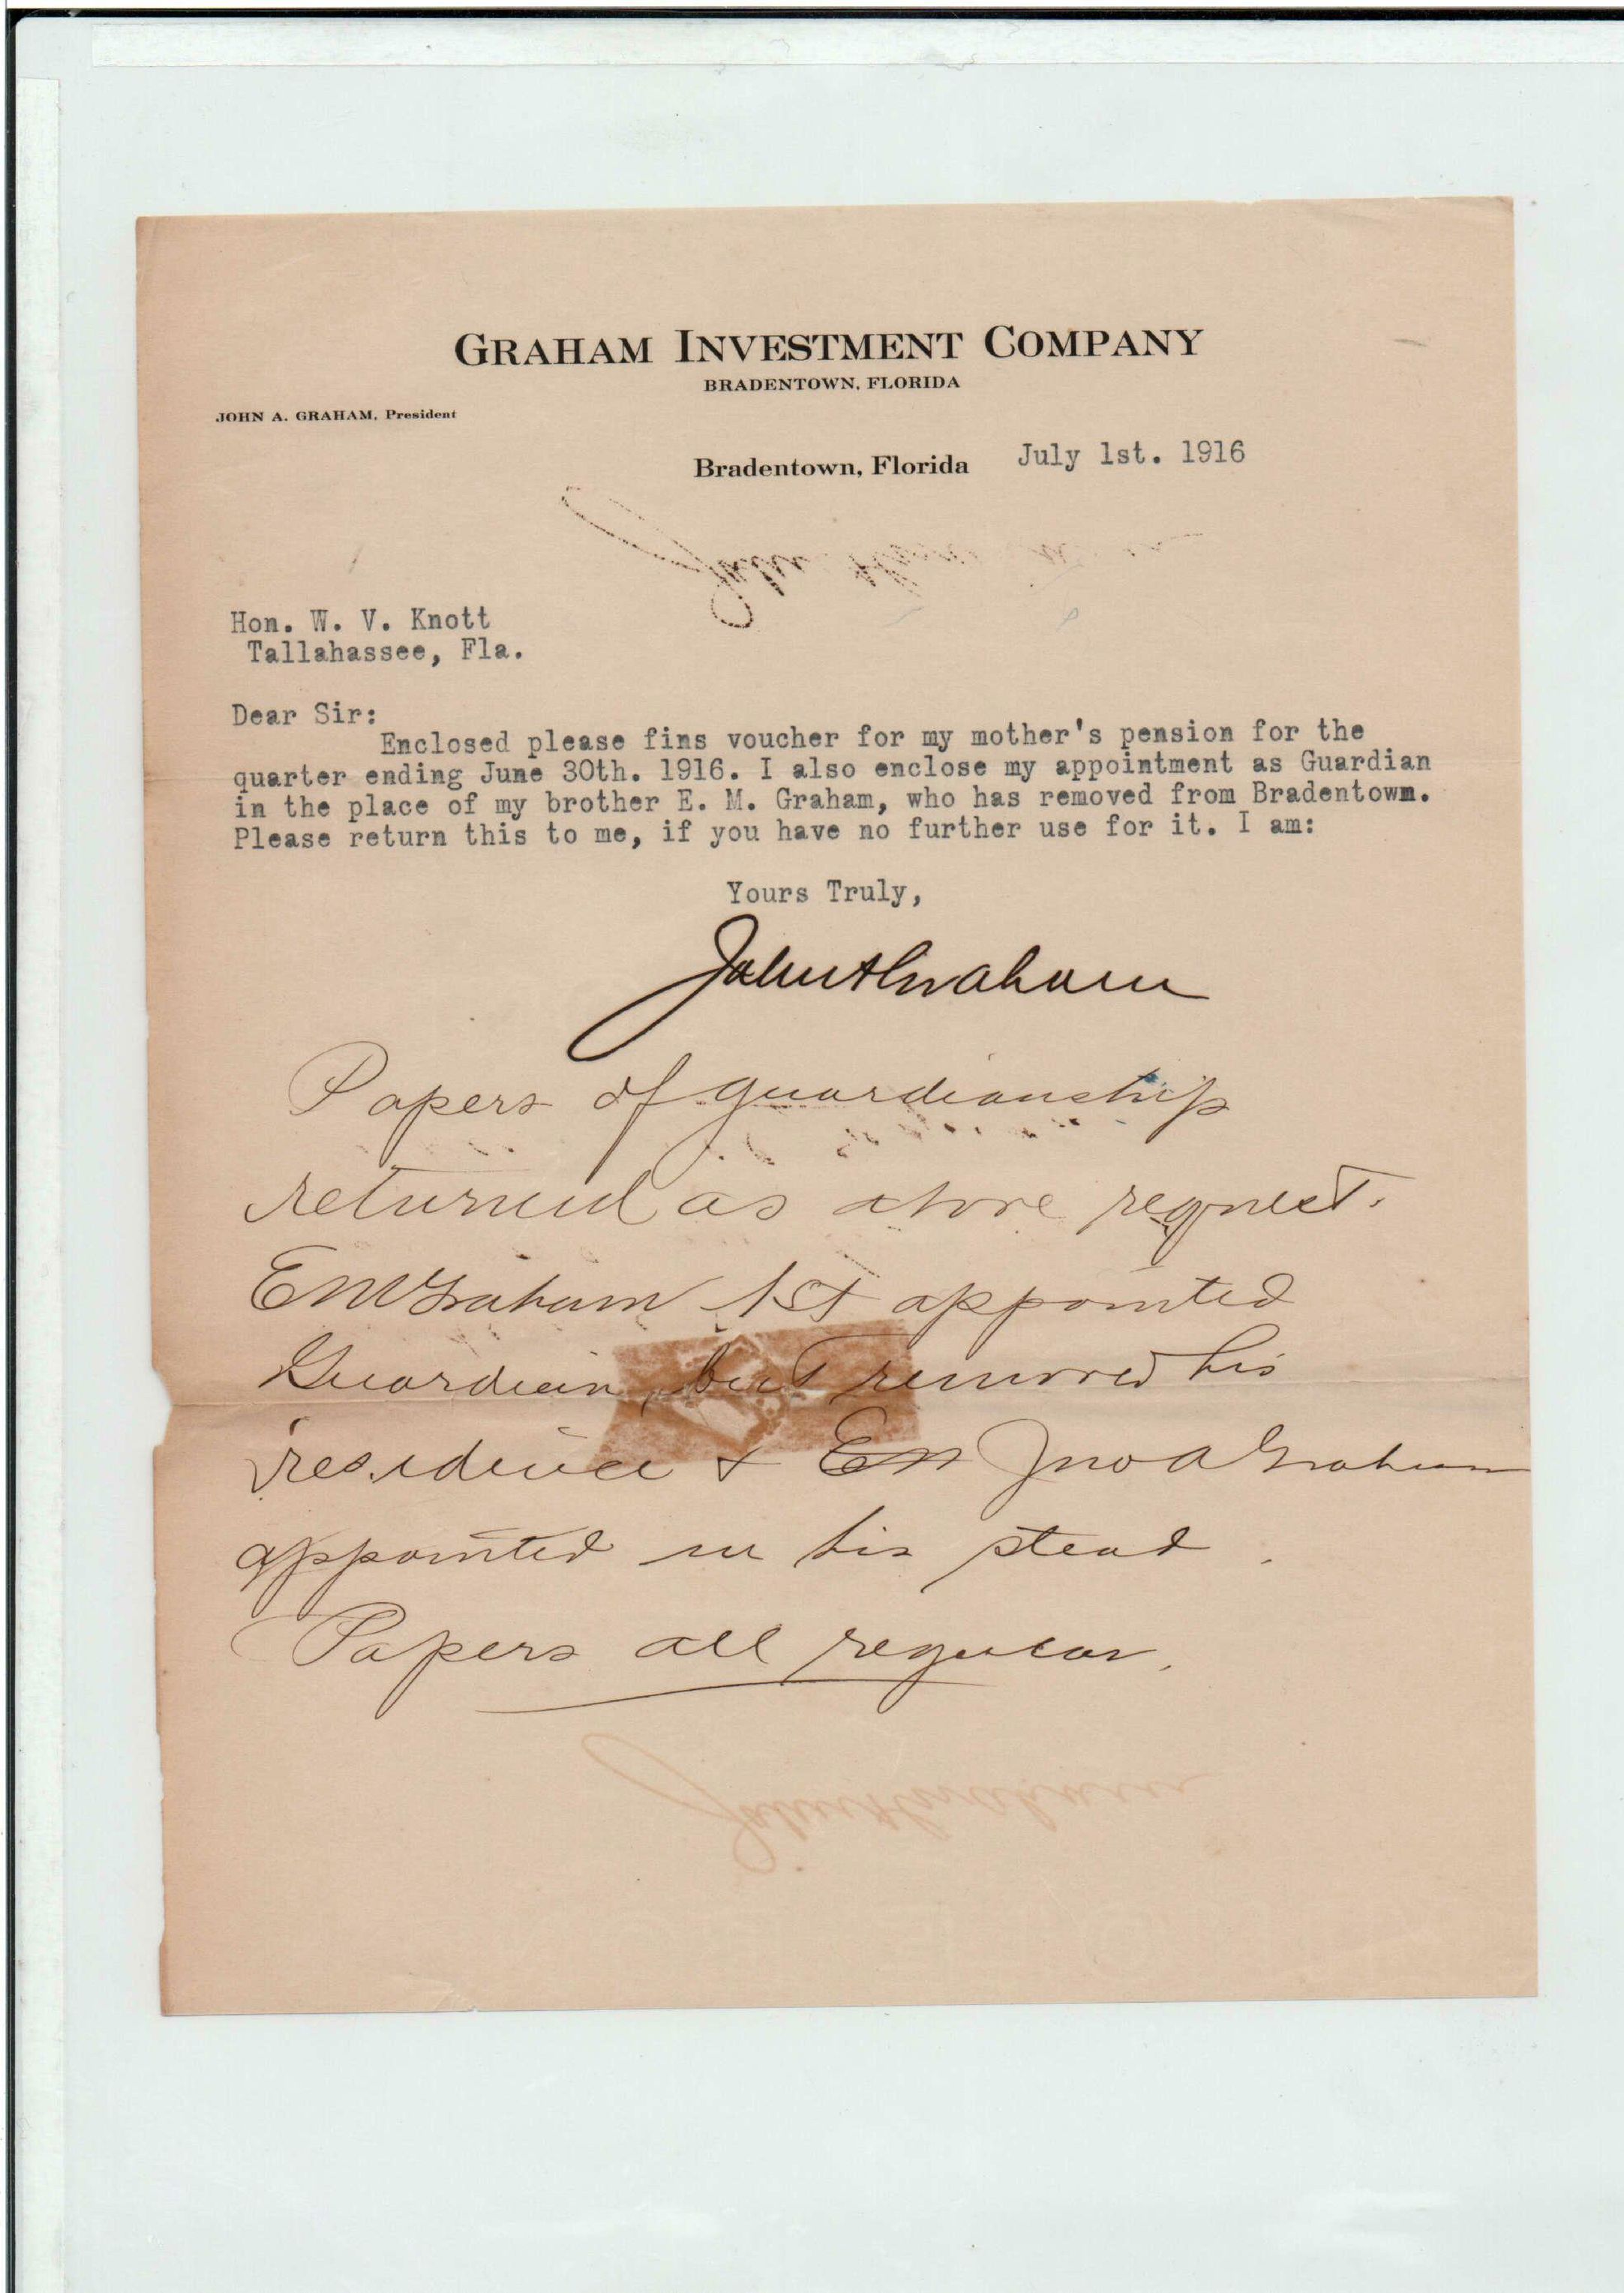 GRAHAM INVESTMENT COMPANY
BRADENTOWN, FLORIDA
JOHN A. GRAHAM, President
Bradentown, Florida July 1st. 1916
Hon. W. V. Knott
Tallahassee, Fla.
Dear Sir:
Enclosed please fins voucher for my mother's pension for the
quarter ending June 30th. 1916. I also enclose my appointment as Guardian
in the place of my brother E. M. Graham, who has removed from Bradentown.
Please return this to me, if you have no further use for it. I am:
Yours Truly,
John A Graham
Papers of guardianship
returned as above request.
E M Graham 1st appointed
Guardian, but removed his
residence & E M Jno A Graham
appointed in his stead.
Papers all regular.